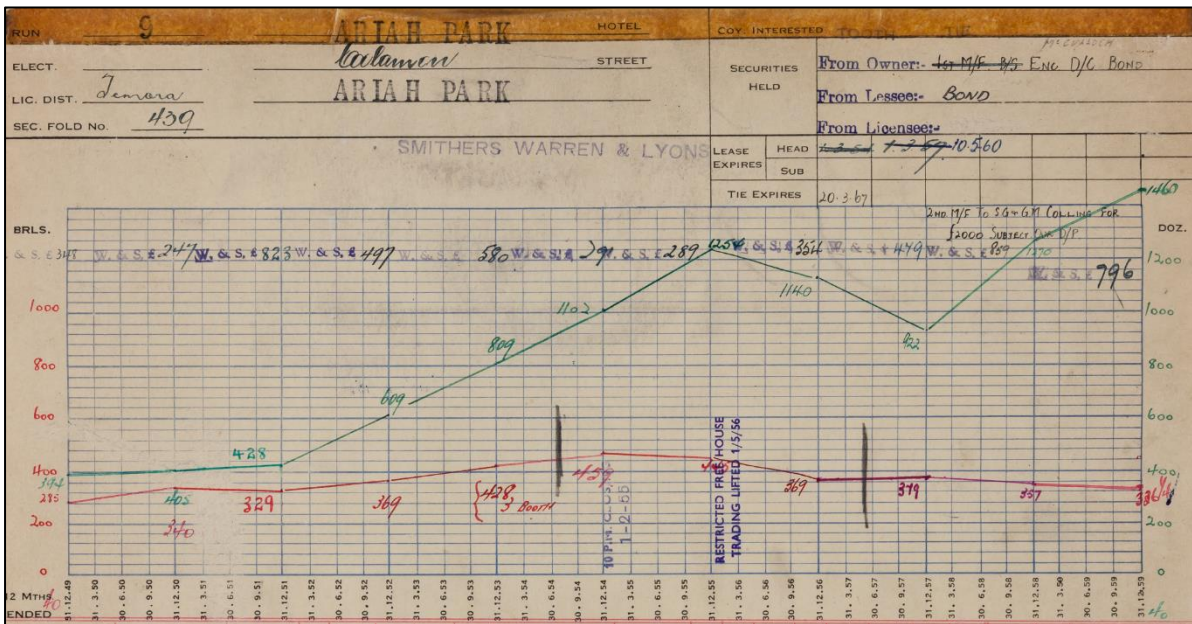 RUN 9 ARIAH PARK HOTEL COY. INTERESTED TOOTH
ELECT. STREET
LIC. DIST. Temora ARIAH PARK
SEC. FOLD No. 439
SECURITIES HELD
From Owner:- 1st M/F. B/S ENC D/C BOND
From Lessee:- BOND
From Licensee:-
SMITHERS WARREN & LYONS
LEASE EXPIRES HEAD 1.3.59 10.5.60
SUB
TIE EXPIRES 20.3.67
2ND. M/F TO SG+GM COLLING FOR
£2000 SUBJECT OUR D/P
BRLS. DOZ.
& S. £ 348 W. & S. £ 247 W. & S. £ 823 W. & S. £ 497 W. & S. £ 580 W. & S. £ 291 W. & S. £ 289 W. & S. £ 354 W. & S. £ 479 W. & S. £ 859
W. & S. £ 796
1460
1254
1270
1200
1140
1102
1000 1000
922
809
800 800
609
600 600
428
400 400
394
285
405
340
329
369
428
3 BOOTH
459
369
379
357
336
200 200
0 0
10 P.M. CLOS.
1-2-55
RESTRICTED FREE HOUSE
TRADING LIFTED 1/5/56
12 MTHS ENDED
40 40
31.12.49 31.3.50 30.6.50 30.9.50 31.12.50 31.3.51 30.6.51 30.9.51 31.12.51 31.3.52 30.6.52 30.9.52 31.12.52 31.3.53 30.6.53 30.9.53 31.12.53 31.3.54 30.6.54 30.9.54 31.12.54 31.3.55 30.6.55 30.9.55 31.12.55 31.3.56 30.6.56 30.9.56 31.12.56 31.3.57 30.6.57 30.9.57 31.12.57 31.3.58 30.6.58 30.9.58 31.12.58 31.3.59 30.6.59 30.9.59 31.12.59